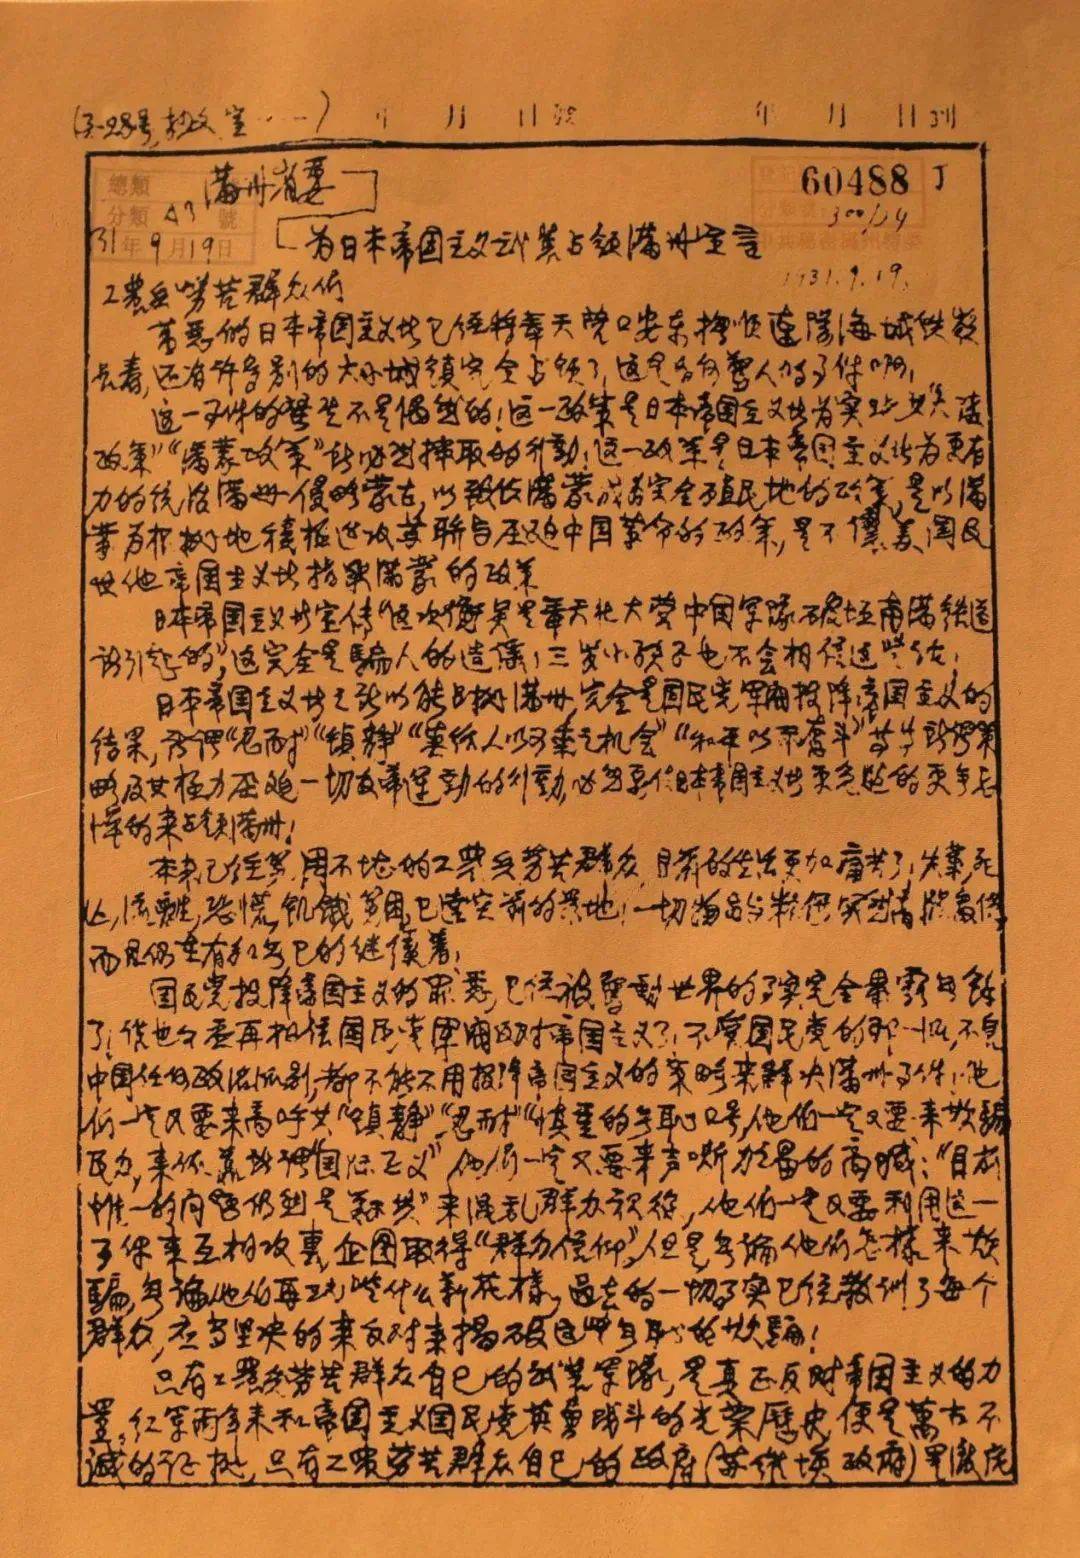 年 月 日 年 月 日到
满州省委
60488 丁
总类
分类 A3 号
300/24
31年9月19日
为日本帝国主义武装占领满州宣言
1931.9.19.
工农兵劳苦群众们
万恶的日本帝国主义者已经将奉天营口安东抚顺辽阳海城铁岭
长春,还有许多别的大小城镇完全占领了,这是多么惊人的事件啊!
这一事件的发生不是偶然的!这一政策是日本帝国主义者为实现其“大陆
政策”“满蒙政策”所必然采取的行动!这一政策是日本帝国主义者为更有
力的统治满州,侵略蒙古,以致使满蒙成为完全殖民地的政策,是以满
蒙为根据地积极进攻苏联与压迫中国革命的政策,是不让英、美、国及
其他帝国主义者指染满蒙的政策
日本帝国主义者宣传“这次冲突是奉天北大营中国军队破坏南满铁道
所引起的”,这完全是骗人的造谣,三岁小孩子也不会相信这些话!
日本帝国主义者之所以能占据满州,完全是国民党军阀投降帝国主义的
结果,所谓“忍耐”“镇静”“莫给人以可乘之机会”“和平以示奋斗”等等的策
略及其极力压迫一切反帝运动的行动,必然要使日本帝国主义者更急烈的更无忌
惮的来占领满州!
本来已经穷困不堪的工农兵劳苦群众,目前的生活更加痛苦了,失业,死
亡,流离,恐慌,饥饿穷困,已达空前的苦地!一切物品与粮食突然 高涨
而且仍在有加无已的继续着!
国民党投降帝国主义的罪恶,已经被震动世界的事实完全暴露无余
了!谁也不要再相信国民党军阀反对帝国主义了!不管国民党的那一派,不管
中国任何政治派别,都不能不用投降帝国主义的策略来解决满州事件!他
们一定又要来高呼其“镇静”“忍耐”“慎重”的无耻口号,他们一定又要来欺骗
民众,来依靠所谓“国际正义”他们一定又要来声嘶力竭的高喊:“目前
惟一的问题仍然是剿共”来混乱群众视线,他们一定又要利用这一
事件来互相攻击,企图取得“群众信仰”,但是无论他们怎样来欺
骗,无论他们再玩些什么新花样,过去的一切事实已经教训了每个
群众,应当坚决的来反对来揭破这些无耻的欺骗!
只有工农兵劳苦群众自己的武装军队,是真正反对帝国主义的力
量,红军两年来和帝国主义国民党英勇战斗的光荣历史,便是万古不
灭的证据,只有工农劳苦群众自己的政府(苏维埃政府)是彻底